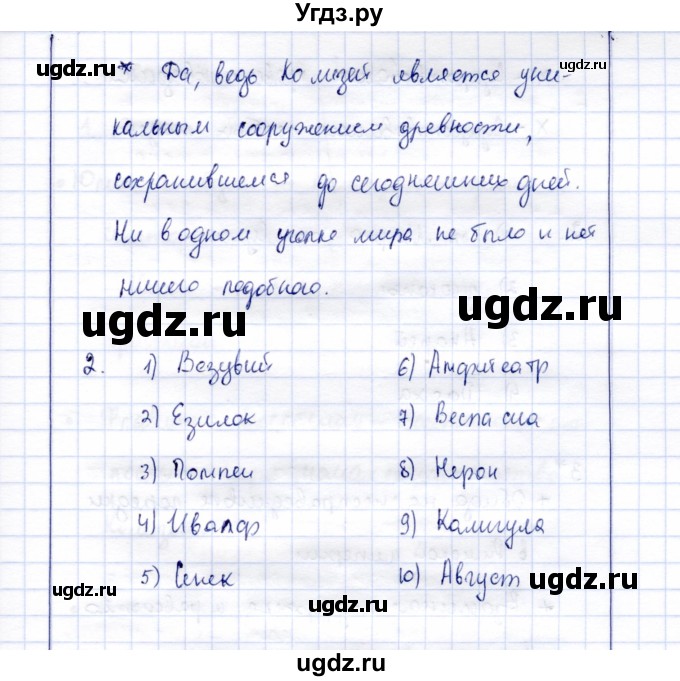 Угдз.ру
ugdz.ru ugdz.ru ugdz.ru
* Да, ведь Колизей является уни-
кальным сооружением древности,
сохранившемся до сегодняшних дней.
Ни в одном уголке мира не было и нет
ничего подобного.
ugdz.ru ugdz.ru
2. 1) Везувий
2) Езилок
3) Помпеи
4) Ивалф
5) Сенек
6) Амфитеатр
7) Веспасиа
8) Нерон
9) Калигула
10) Август
ugdz.ru ugdz.ru
ugdz.ru ugdz.ru
ugdz.ru
ugdz.ru